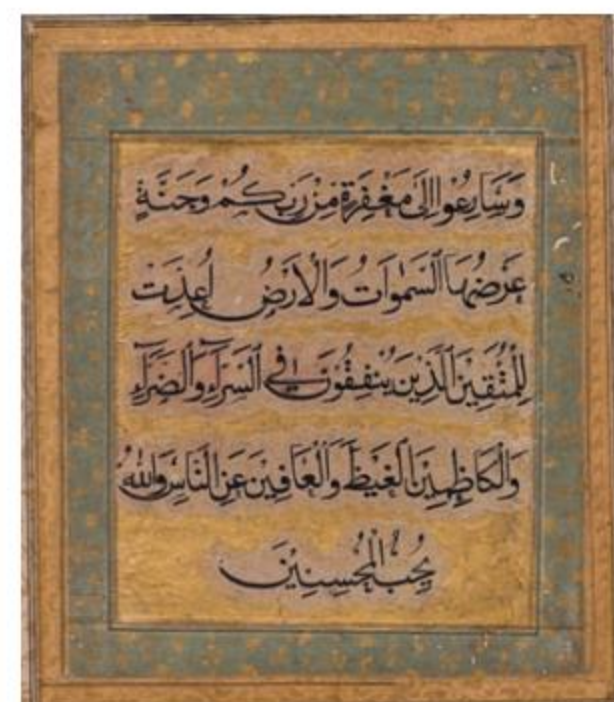 وَسَارِعُوا إِلَى مَغْفِرَةٍ مِنْ رَبِّكُمْ وَجَنَّةٍ
عَرْضُهَا السَّمٰوَاتُ وَالْأَرْضُ أُعِدَّتْ
لِلْمُتَّقِينَ الَّذِينَ يُنْفِقُونَ فِي السَّرَّآءِ وَالضَّرَّآءِ
وَالْكَاظِمِينَ الْغَيْظَ وَالْعَافِينَ عَنِ النَّاسِ وَاللهُ
يُحِبُّ الْمُحْسِنِينَ